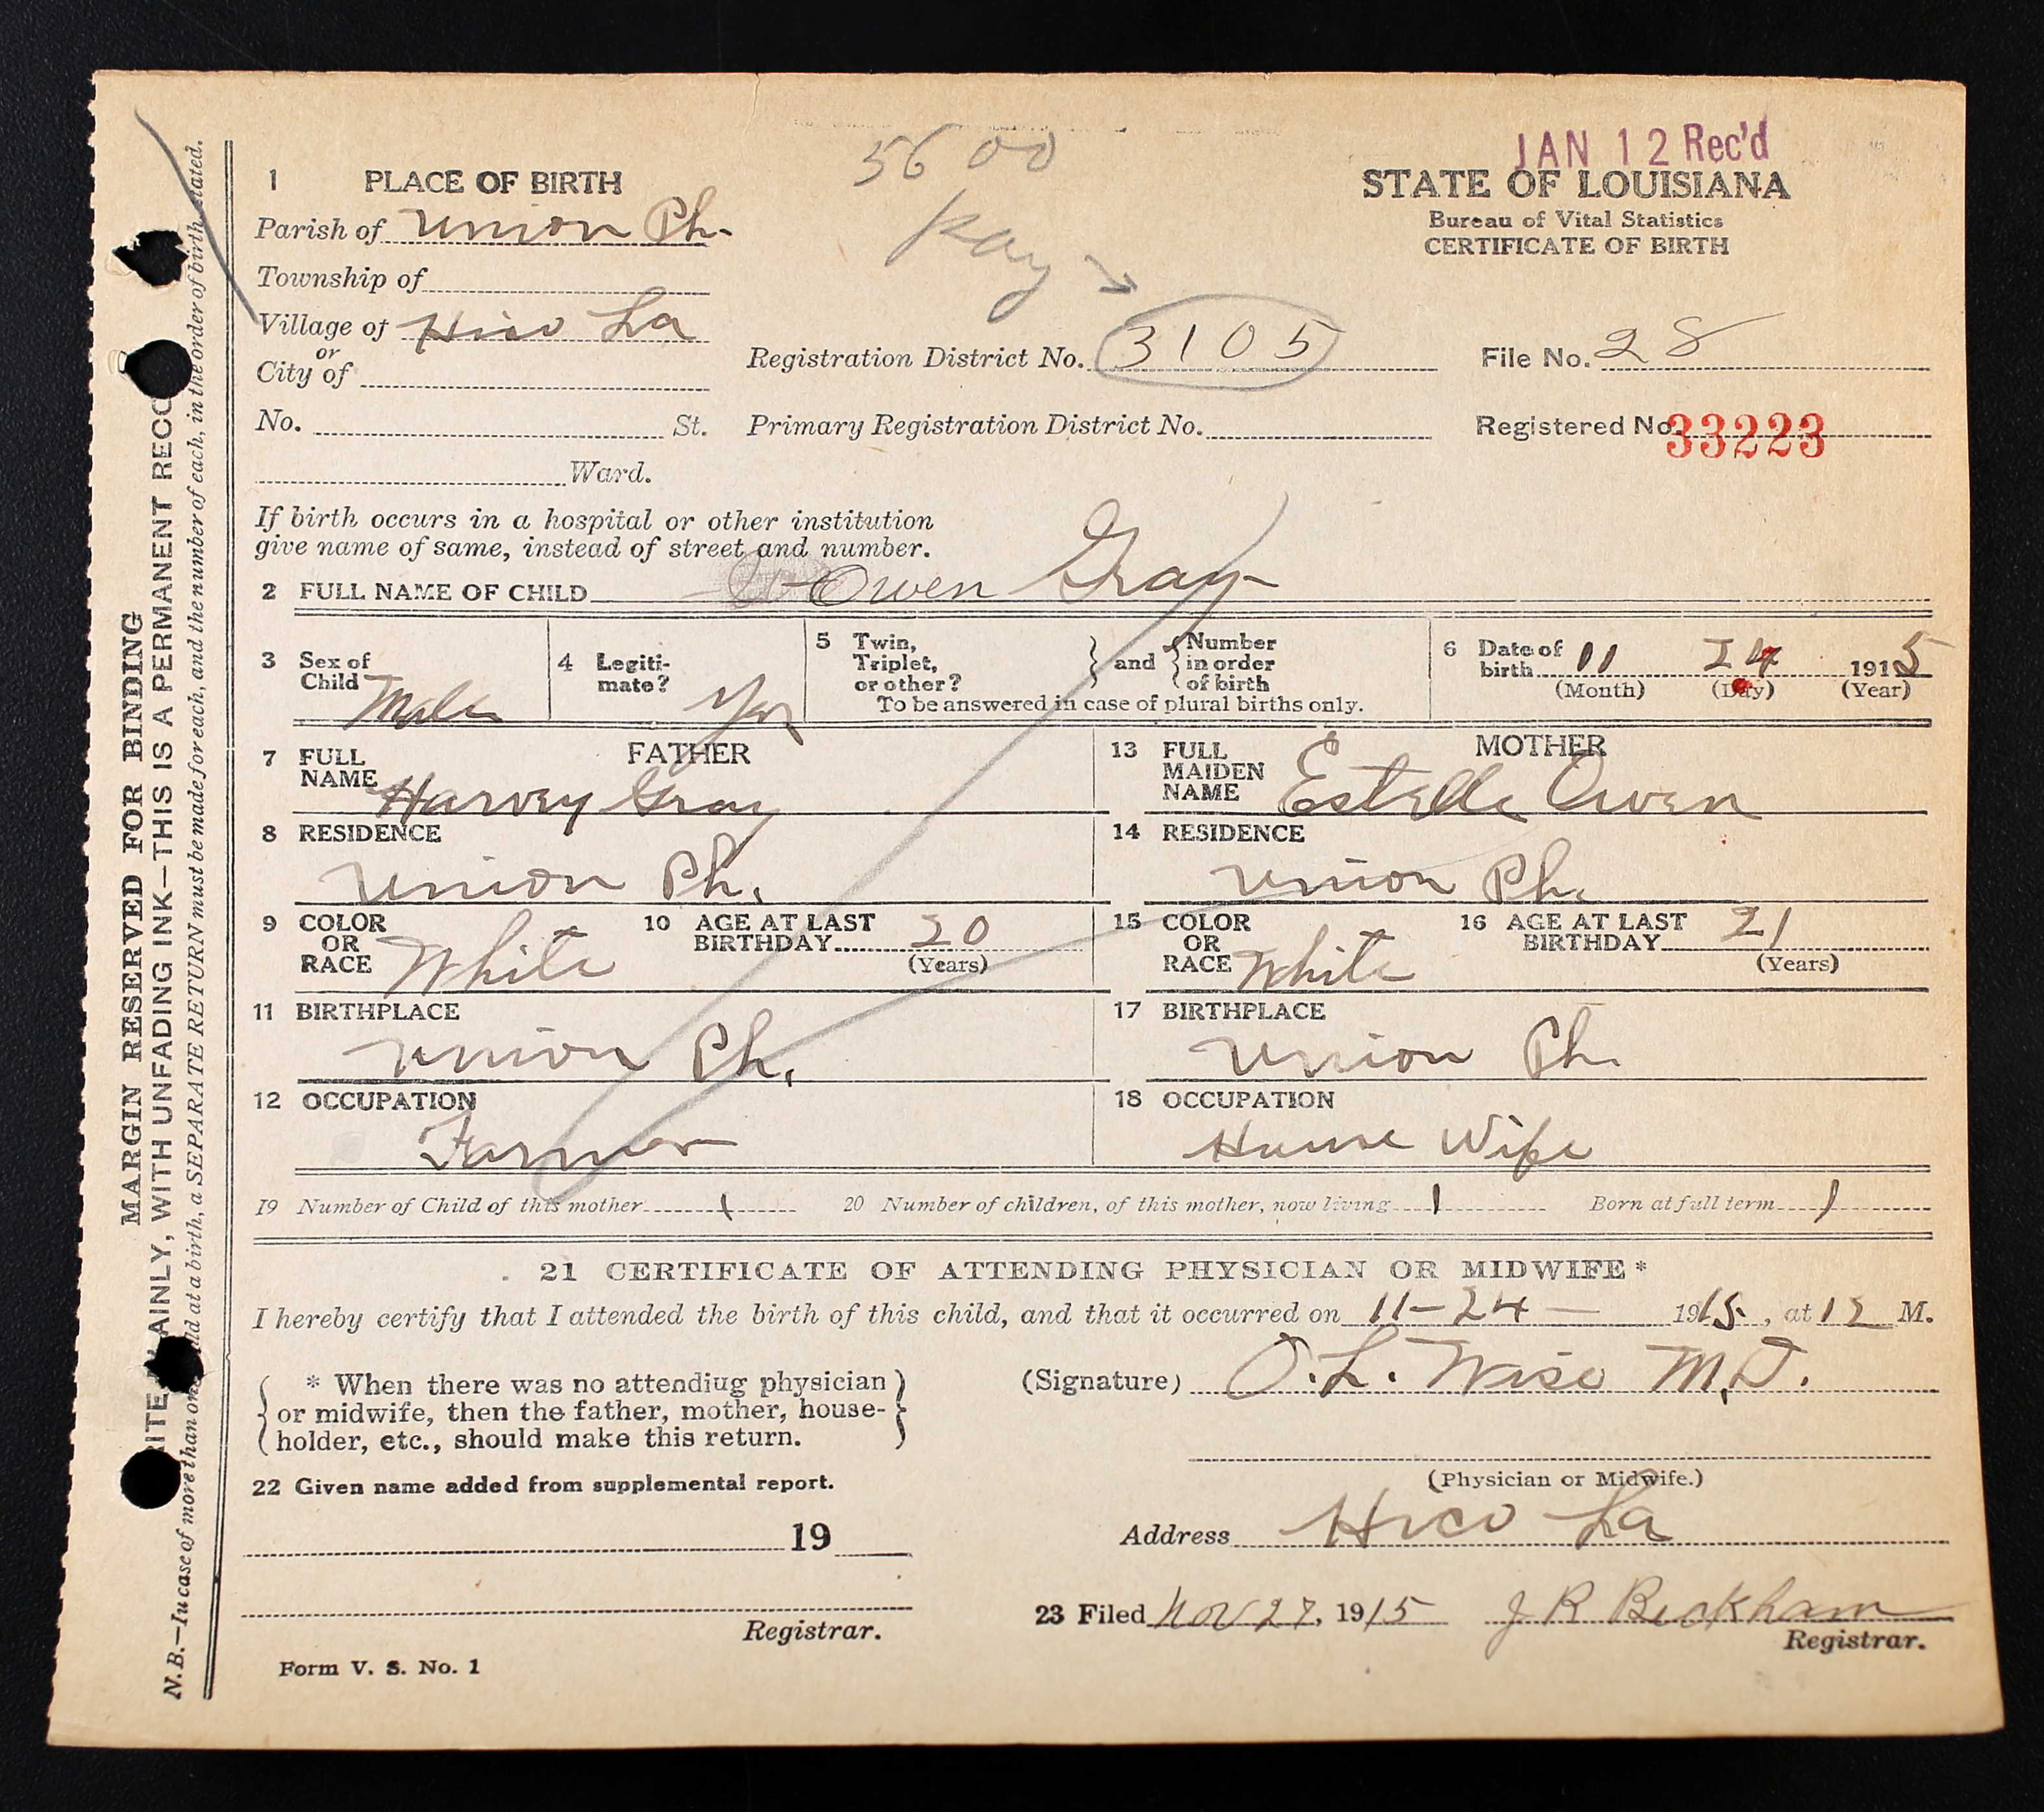 JAN 12 Rec'd
5600
1 PLACE OF BIRTH
STATE OF LOUISIANA
Bureau of Vital Statistics
CERTIFICATE OF BIRTH
Parish of Union Ph.
Township of
Village of Hico La
or
City of
Registration District No. 3105
File No. 28
No. St.
Primary Registration District No.
Registered No. 33223
Ward.
If birth occurs in a hospital or other institution
give name of same, instead of street and number.
2 FULL NAME OF CHILD Owen Gray
3 Sex of Child Male
4 Legiti-mate? Yes
5 Twin, Triplet, or other? } and { Number in order of birth
To be answered in case of plural births only.
6 Date of birth 11 24 1915
(Month) (Day) (Year)
FATHER
7 FULL NAME Harvey Gray
8 RESIDENCE
Union Ph.
9 COLOR OR RACE White
10 AGE AT LAST BIRTHDAY 20
(Years)
11 BIRTHPLACE
Union Ph.
12 OCCUPATION
Farmer
MOTHER
13 FULL MAIDEN NAME Estelle Owen
14 RESIDENCE
Union Ph.
15 COLOR OR RACE White
16 AGE AT LAST BIRTHDAY 21
(Years)
17 BIRTHPLACE
Union Ph.
18 OCCUPATION
House Wife
19 Number of Child of this mother 1
20 Number of children, of this mother, now living 1 Born at full term 1
21 CERTIFICATE OF ATTENDING PHYSICIAN OR MIDWIFE*
I hereby certify that I attended the birth of this child, and that it occurred on 11-24- 1915, at 12 M.
* When there was no attendiug physician
or midwife, then the father, mother, house-
holder, etc., should make this return.
(Signature) O. L. Wise M.D.
(Physician or Midwife.)
22 Given name added from supplemental report.
19
Registrar.
Address Hico La
23 Filed Nov 27, 1915 J R Beckham
Registrar.
Form V. S. No. 1
MARGIN RESERVED FOR BINDING
AINLY, WITH UNFADING INK—THIS IS A PERMANENT RECO
N.B.—In case of more than one child at a birth, a SEPARATE RETURN must be made for each, and the number of each, in the order of birth, stated.